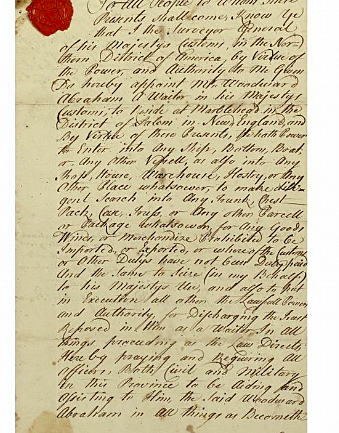 For All People to Whom These
Presents shall come, Know Ye
that I the Surveyor General
of his Majestys Customs, in the Nor-
thern District of America, by Vertue of
the Power, and Authority to Me Given
Do hereby appoint Mr. Woodward
Abraham A Waiter in his Majestys
Customs, to Reside at Marblehead in the
District of Salem in New England, and
By Vertue of these Presents, he hath Power
to Enter into Any Ship, Bottom, Boat,
or Any Other Vessell, as also into Any
Shop, House, Warehouse, Hostry, or Any
Other Place whatsoever, to make dili-
gent Search into Any Trunk Chest
Pack, Case, Truss, or Any other Parcell
or Package whatsoever, for Any Goods
Wines, or Merchandize Prohibited to be
Imported, or Exported, or whereof the Customs
or Other Dutys have not been Duly paid
And the Same to Seize (in my Behalf)
to his Majestys Use, and also to put
in Execution all other the Lawfull Powers
and Authority, for Discharging the Trust
Reposed in Him as a Waiter, In All
things proceeding as the Law Directs,
Hereby praying and Requiring All
Officers, Both Civil and Military
in this Province to be Aiding and
Assisting to Him, the Said Woodward
Abraham in All things as Becometh